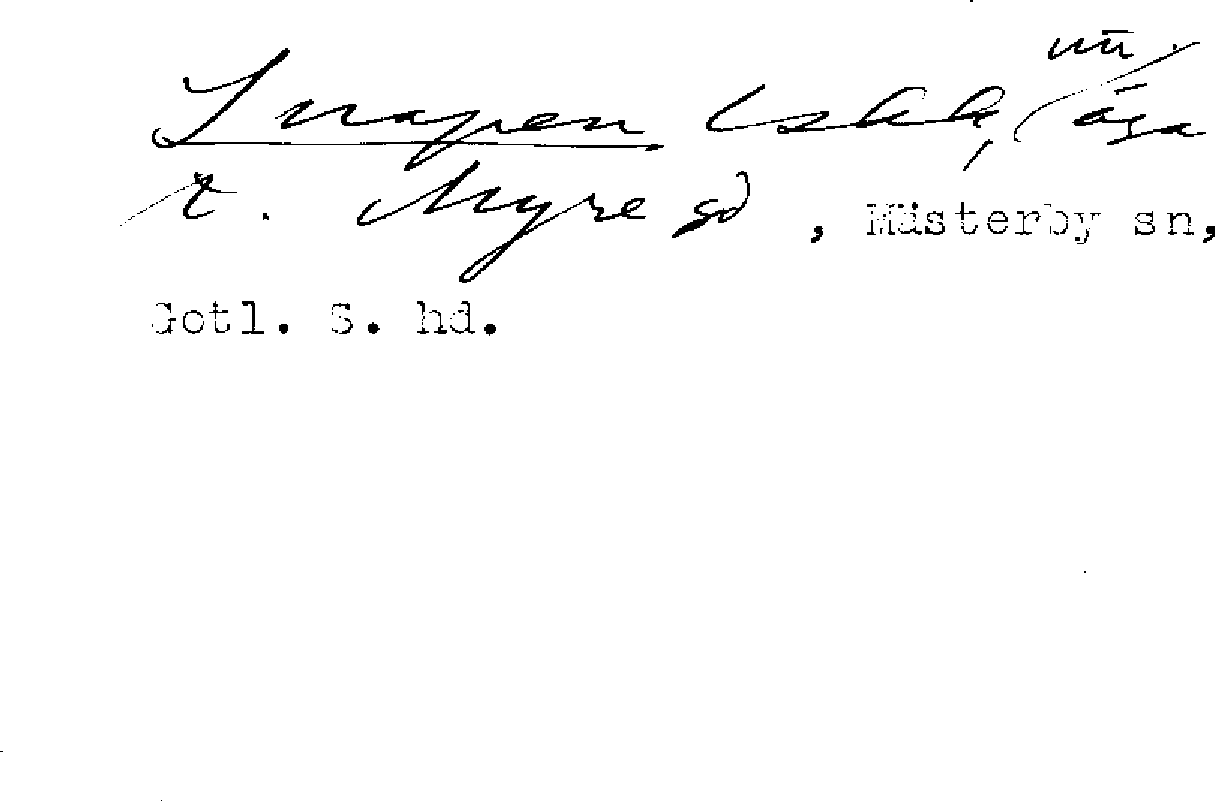 Snapen lskk, nu / åsa
t. Myre gd, Mästerby sn,
Gotl. S. hd.